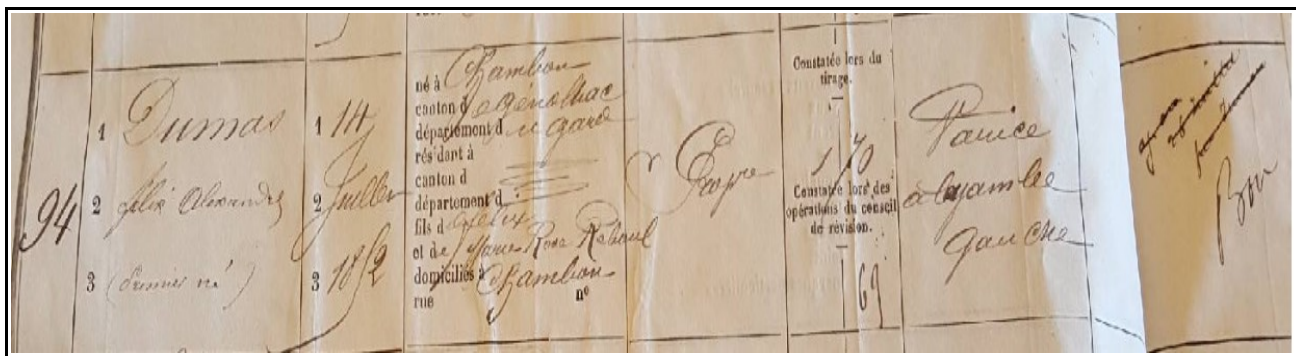 94
1 Dumas
2 félix Alexandre
3 (Premier né)
1 14
2 Juillet
3 1852
né à Chambon
canton de Génolhac
département du gard
résidant à
canton d
département d
fils de félix
et de Marie Rose Reboul
domiciliés à Chambon
rue n°
Constatée lors du
tirage.
1 70
Constatée lors des
opérations du conseil
de révision.
1 69
Varice
à la jambe
gauche
Bon